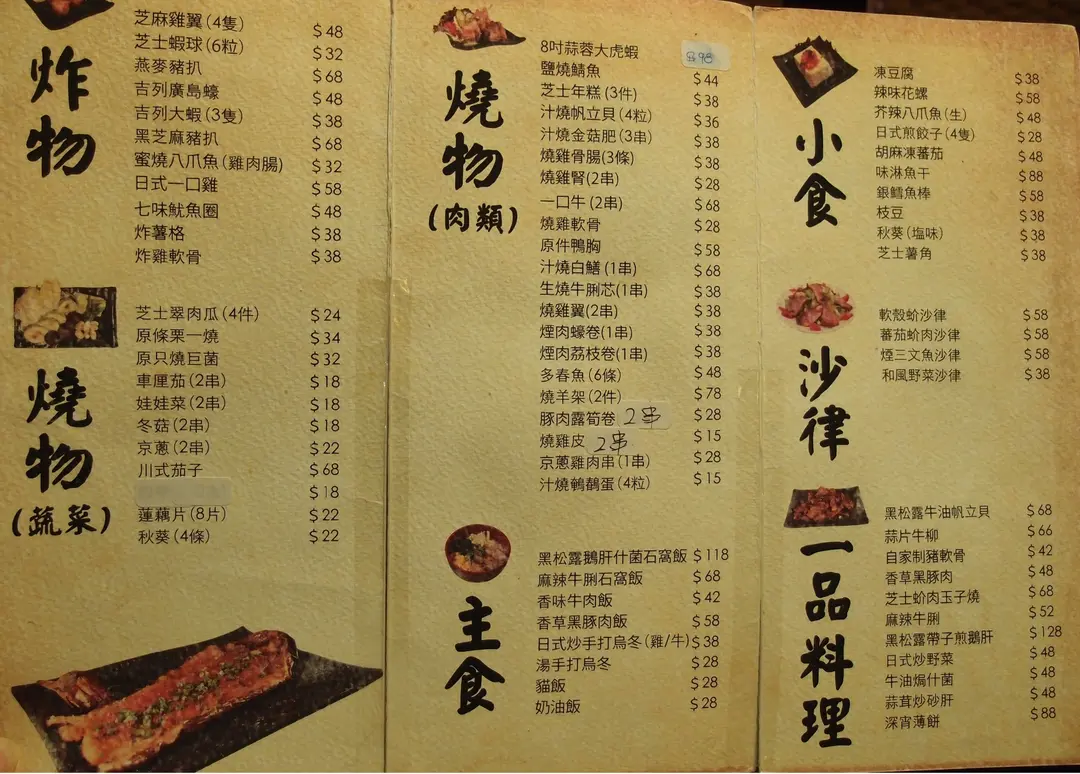 炸物
芝麻雞翼(4隻) $48
芝士蝦球(6粒) $32
燕麥豬扒 $68
吉列廣島蠔 $48
吉列大蝦(3隻) $38
黑芝麻豬扒 $68
蜜燒八爪魚(雞肉腸) $32
日式一口雞 $58
七味魷魚圈 $48
炸薯格 $38
炸雞軟骨 $38
燒物
(蔬菜)
芝士翠肉瓜(4件) $24
原條栗一燒 $34
原只燒巨菌 $32
車厘茄(2串) $18
娃娃菜(2串) $18
冬菇(2串) $18
京蔥(2串) $22
川式茄子 $68
$18
蓮藕片(8片) $22
秋葵(4條) $22
燒物
(肉類)
8吋蒜蓉大虎蝦 $98
鹽燒鯖魚 $44
芝士年糕(3件) $38
汁燒帆立貝(4粒) $36
汁燒金菇肥(3串) $38
燒雞骨腸(3條) $38
燒雞腎(2串) $28
一口牛(2串) $68
燒雞軟骨 $28
原件鴨胸 $58
汁燒白鱔(1串) $68
生燒牛脷芯(1串) $38
燒雞翼(2串) $38
煙肉蠔卷(1串) $38
煙肉荔枝卷(1串) $38
多春魚(6條) $48
燒羊架(2件) $78
豚肉露筍卷 2串 $28
燒雞皮 2串 $15
京蔥雞肉串(1串) $28
汁燒鵪鶉蛋(4粒) $15
主食
黑松露鵝肝什菌石窩飯 $118
麻辣牛脷石窩飯 $68
香味牛肉飯 $42
香草黑豚肉飯 $58
日式炒手打烏冬(雞/牛) $38
湯手打烏冬 $28
貓飯 $28
奶油飯 $28
小食
凍豆腐 $38
辣味花螺 $58
芥辣八爪魚(生) $48
日式煎餃子(4隻) $28
胡麻凍蕃茄 $48
味淋魚干 $88
銀鱈魚棒 $58
枝豆 $38
秋葵(塩味) $38
芝士薯角 $38
沙律
軟殼蚧沙律 $58
蕃茄蚧肉沙律 $58
煙三文魚沙律 $58
和風野菜沙律 $38
一品料理
黑松露牛油帆立貝 $68
蒜片牛柳 $66
自家制豬軟骨 $42
香草黑豚肉 $48
芝士蚧肉玉子燒 $68
麻辣牛脷 $52
黑松露帶子煎鵝肝 $128
日式炒野菜 $48
牛油焗什菌 $48
蒜茸炒砂肝 $48
深宵薄餅 $88